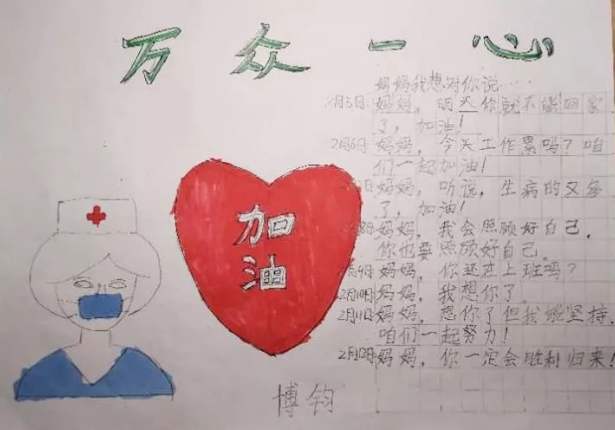 万众一心
妈妈我想对你说……
2月5日:妈妈，明天你就不能回家
了，加油！
2月6日:妈妈，今天工作累吗？咱
们一起加油！
日:妈妈，听说，生病的又多
了，加油！
8日:妈妈，我会照顾好自己，
你也要照顾好自己。
月9日:妈妈，你还在上班吗？
2月10日:妈妈，我想你了
2月11日:妈妈，想你了但我能坚持，
咱们一起努力！
2月12日:妈妈，你一定会胜利归来！
加
油
博钧